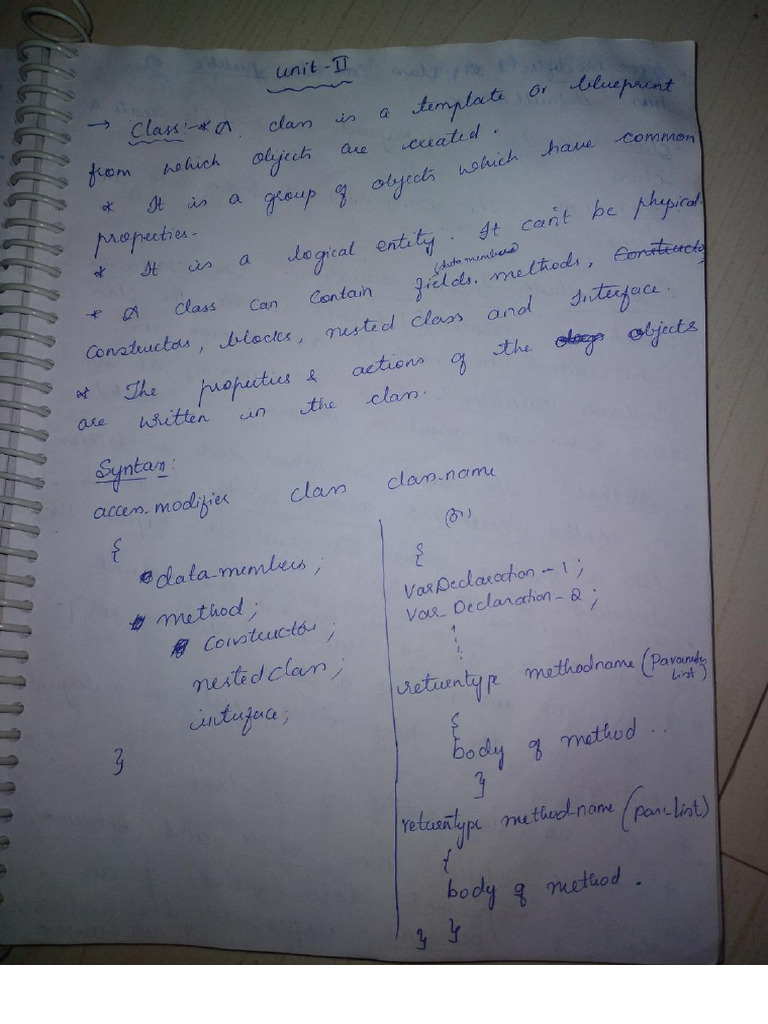 Unit-II
→ Class:-* A class is a template or blueprint
from which objects are created.
* It is a group of objects which have common
properties.
* It is a logical entity. It can't be physical.
(data members)
* A class can contain fields, methods, Constructo
Constructors, blocks, nested class and Interface.
* The properties & actions of the objects
are written in the class.
Syntax:
access_modifier class class_name
{
data_members;
method;
constructor;
nested class;
interface;
}
(or)
{
Var Declaration - 1;
Var_Declaration_2;
returntype methodname (Parameter
List)
{
body of method ..
}
returntype method-name (par-list)
{
body of method.
}
}